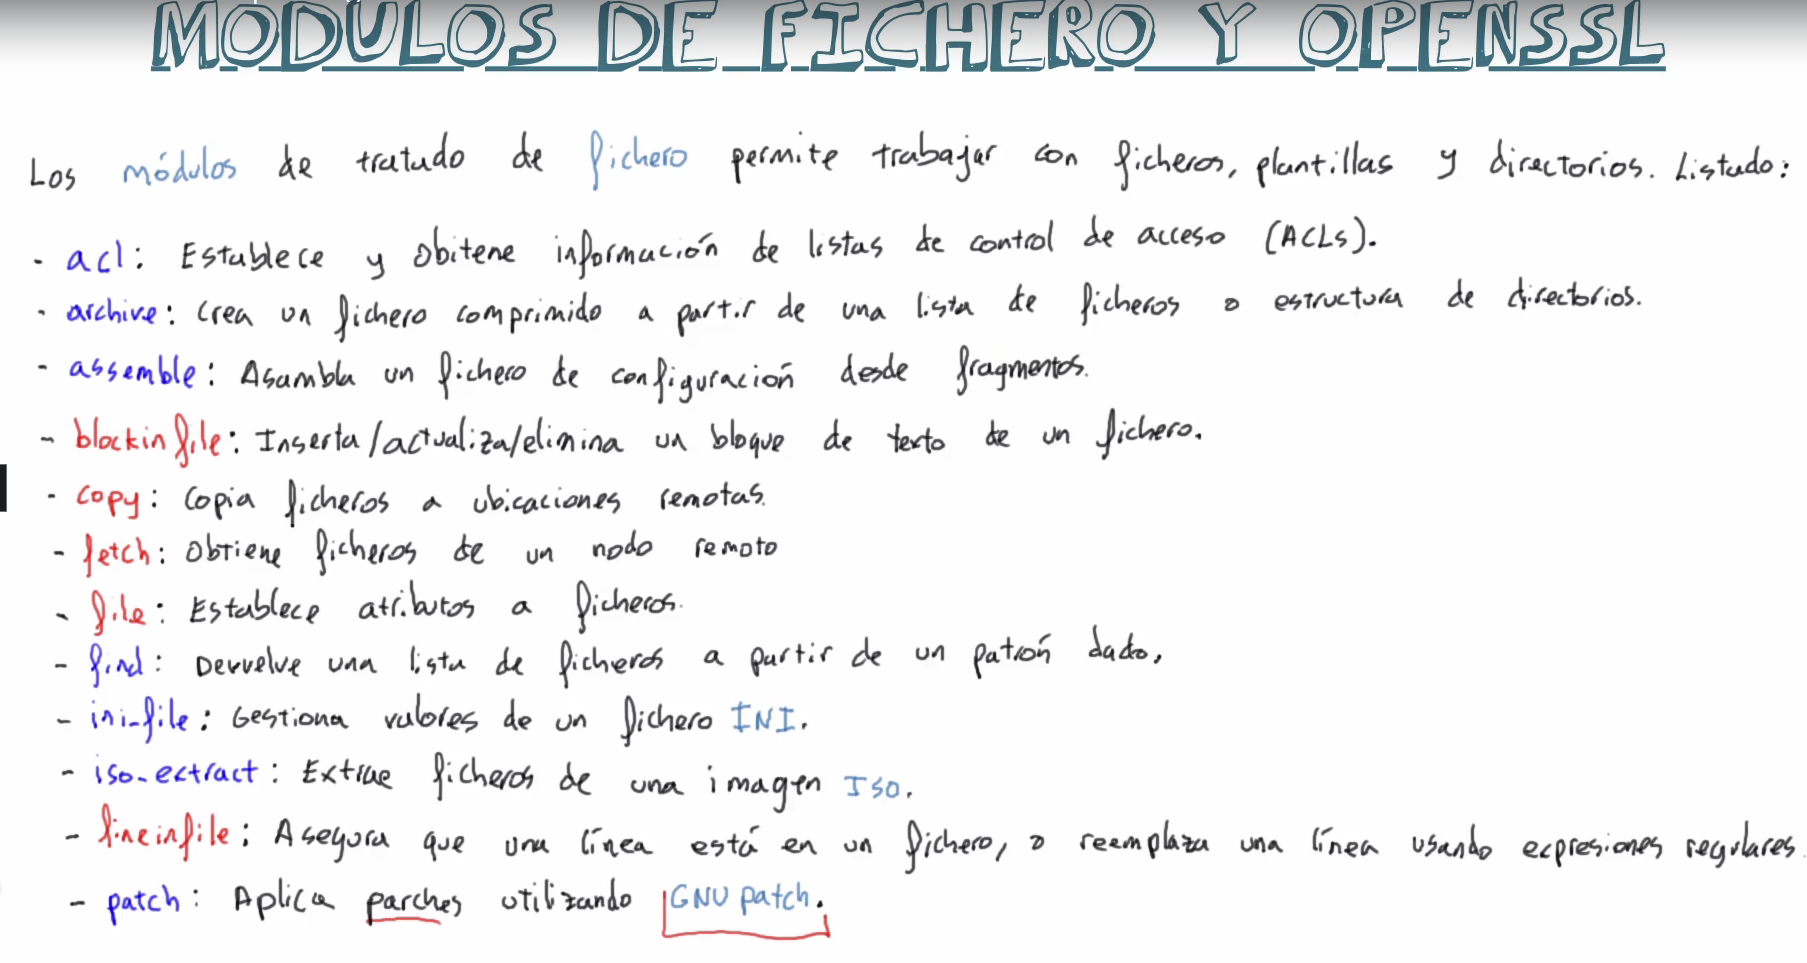 MODULOS DE FICHERO Y OPENSSL
Los módulos de tratado de fichero permite trabajar con ficheros, plantillas y directorios. Listado:
- acl: Establece y obitene información de listas de control de acceso (ACLs).
- archive: Crea un fichero comprimido a partir de una lista de ficheros o estructura de directorios.
- assemble: Asambla un fichero de configuración desde fragmentos.
- blockinfile: Inserta/actualiza/elimina un bloque de texto de un fichero.
- copy: Copia ficheros a ubicaciones remotas.
- fetch: Obtiene ficheros de un nodo remoto
- file: Establece atributos a ficheros.
- find: Devuelve una lista de ficheros a partir de un patrón dado.
- ini_file: Gestiona valores de un fichero INI.
- iso_extract: Extrae ficheros de una imagen ISO.
- lineinfile: Asegura que una línea está en un fichero, o reemplaza una línea usando expresiones regulares
- patch: Aplica parches utilizando GNU patch.